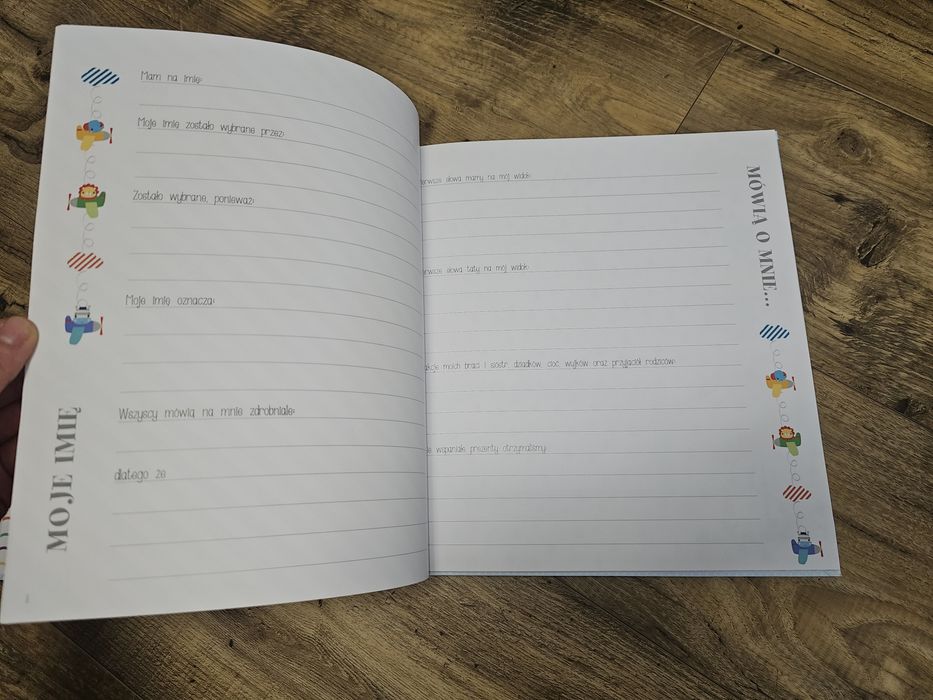 Mam na imię:
Moje imię zostało wybrane przez:
Zostało wybrane, ponieważ:
Moje imię oznacza:
Wszyscy mówią na mnie zdrobniale:
dlatego że
MOJE IMIĘ
MÓWIĄ O MNIE...
słowa mamy na mój widok:
słowa taty na mój widok:
moich braci i sióstr, dziadków, cioć, wujków oraz przyjaciół rodziców:
wspaniałe prezenty otrzymaliśmy: